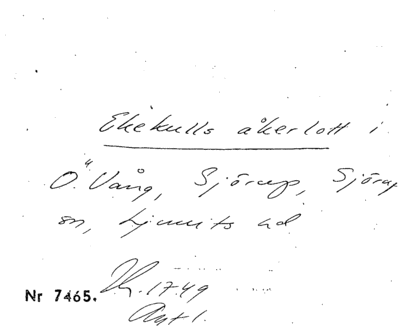 Ekekulls åkerlott i
Ö. Vång, Sjörup, Sjörup
sn, Ljunits hd
Nr 7465. Uk. 1749
Avt 1.